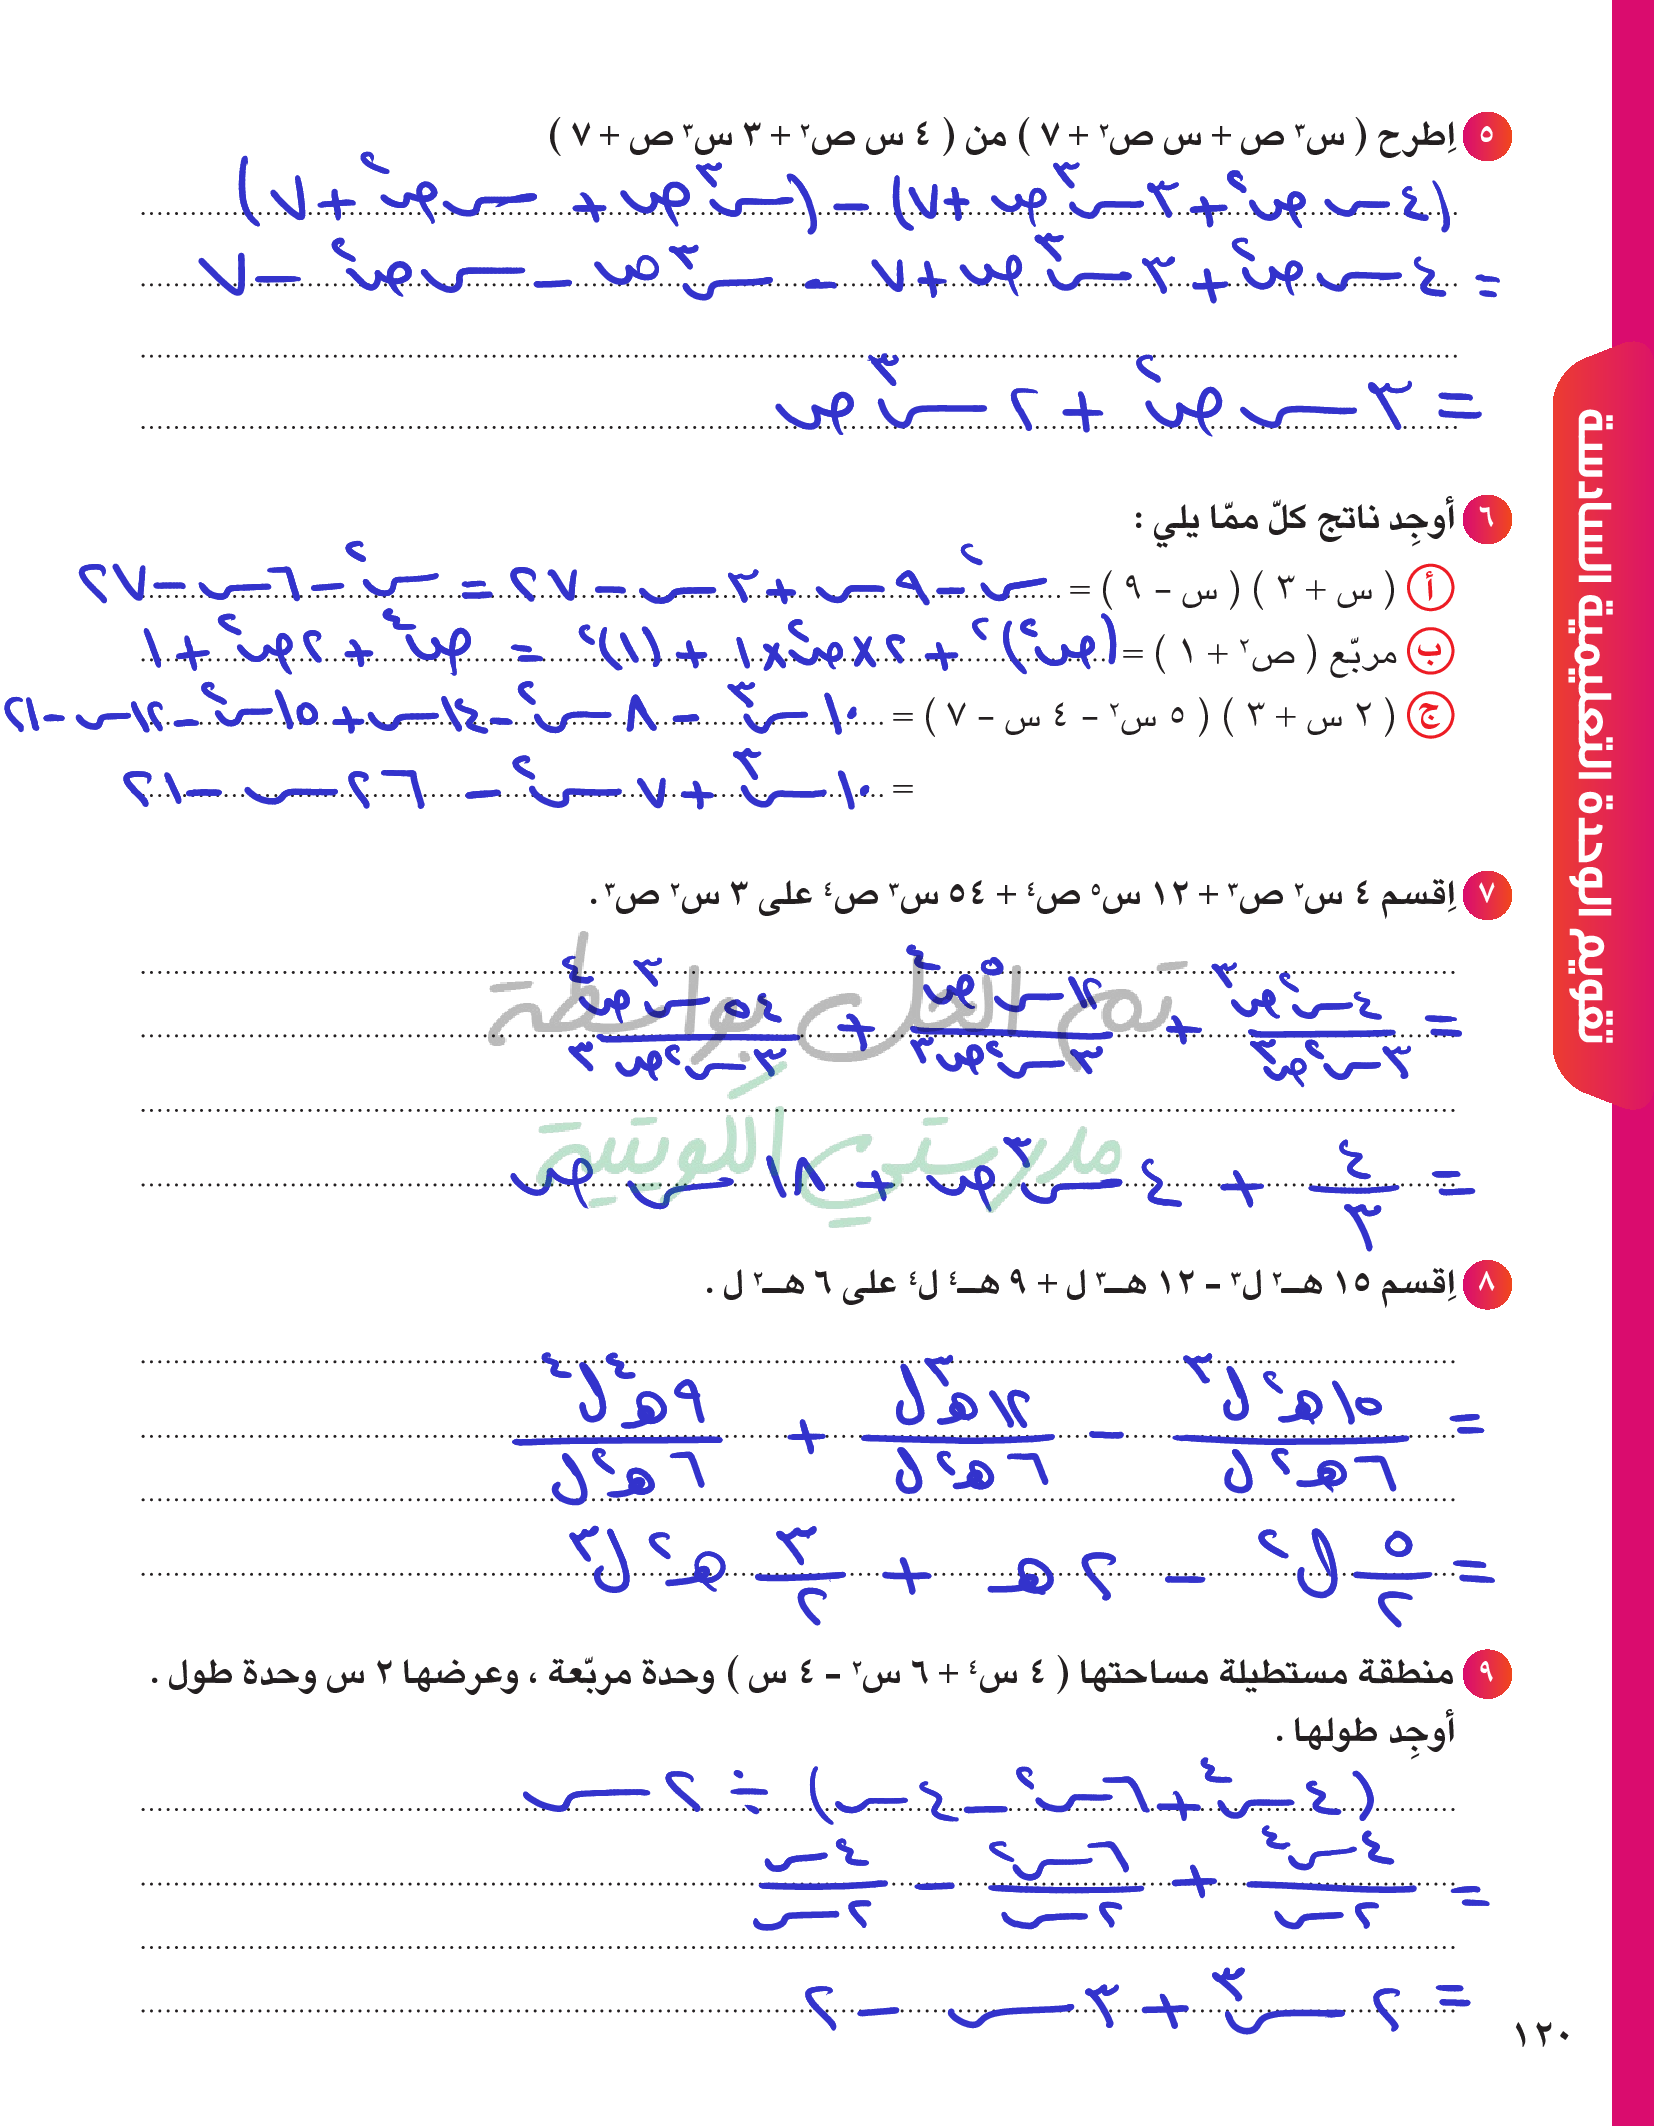 ٥ اِطرح ( س٣ ص + س ص٢ + ٧ ) من ( ٤ س ص٢ + ٣ س٣ ص + ٧ )
(٤ س ص٢ + ٣ س٣ ص + ٧) − (س٣ ص + س ص٢ + ٧)
= ٤ س ص٢ + ٣ س٣ ص + ٧ − س٣ ص − س ص٢ − ٧
= ٣ س ص٢ + ٢ س٣ ص
٦ أوجِد ناتج كلّ ممّا يلي :
أ ( س + ٣ ) ( س – ٩ ) = س٢ − ٩ س + ٣ س − ٢٧ = س٢ − ٦ س − ٢٧
ب مربّع ( ص٢ + ١ ) = (ص٢)٢ + ٢ × ص٢ × ١ + (١)٢ = ص٤ + ٢ ص٢ + ١
ج ( ٢ س + ٣ ) ( ٥ س٢ – ٤ س – ٧ ) = ١٠ س٣ − ٨ س٢ − ١٤ س + ١٥ س٢ − ١٢ س − ٢١
= ١٠ س٣ + ٧ س٢ − ٢٦ س − ٢١
٧ اِقسم ٤ س٢ ص٣ + ١٢ س٥ ص٤ + ٥٤ س٣ ص٤ على ٣ س٢ ص٣ .
تم الحل بواسطة
= ٤ س٢ ص٣ / ٣ س٢ ص٣ + ١٢ س٥ ص٤ / ٣ س٢ ص٣ + ٥٤ س٣ ص٤ / ٣ س٢ ص٣
مدرستي الكويتية
= ٤/٣ + ٤ س٣ ص + ١٨ س ص
٨ اِقسم ١٥ هـ٢ ل٣ – ١٢ هـ٣ ل + ٩ هـ٤ ل٤ على ٦ هـ٢ ل .
= ١٥ هـ٢ ل٣ / ٦ هـ٢ ل − ١٢ هـ٣ ل / ٦ هـ٢ ل + ٩ هـ٤ ل٤ / ٦ هـ٢ ل
= ٥/٢ ل٢ − ٢ هـ + ٣/٢ هـ٢ ل٣
٩ منطقة مستطيلة مساحتها ( ٤ س٤ + ٦ س٢ – ٤ س ) وحدة مربّعة ، وعرضها ٢ س وحدة طول .
أوجِد طولها .
(٤ س٤ + ٦ س٢ − ٤ س) ÷ ٢ س
= ٤ س٤ / ٢ س + ٦ س٢ / ٢ س − ٤ س / ٢ س
= ٢ س٣ + ٣ س − ٢
١٢٠
تقويم الوحدة التعليمية السادسة